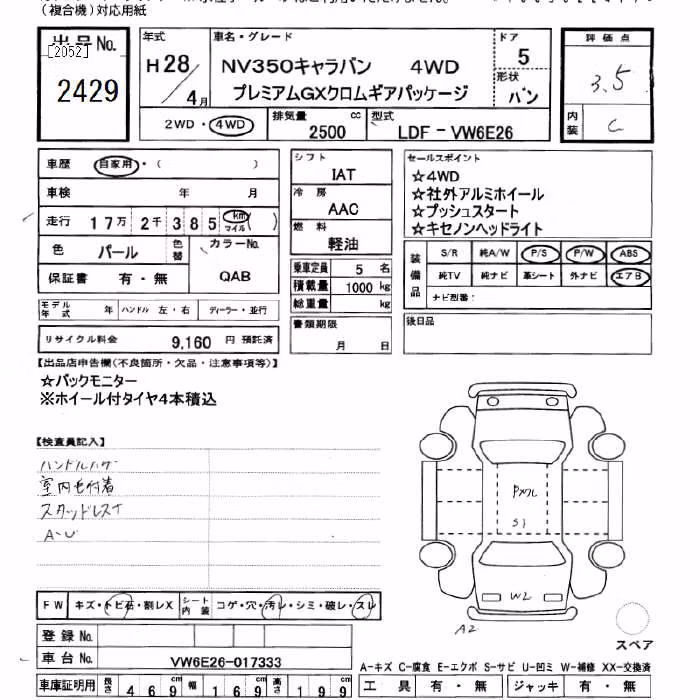 （複合機）対応用紙
出品No.
[2052]
2429
年式
H28/4月
車名・グレード
NV350キャラバン 4WD
プレミアムGXクロムギアパッケージ
ドア
5
形状
バン
評価点
3.5
内装
C
2WD・4WD
排気量
2500 cc
型式
LDF-VW6E26
車歴 自家用・( )
車検 年 月
走行 17万2千385 km マイル ( )
色 パール 色替 カラーNo. QAB
保証書 有・無
モデル年式 年 ハンドル 左・右 ディーラー・並行
リサイクル料金 9,160 円 預託済
シフト
IAT
冷房
AAC
燃料
軽油
乗車定員 5 名
積載量 1000 kg
総重量 kg
書類期限
月 日
セールスポイント
☆4WD
☆社外アルミホイール
☆プッシュスタート
☆キセノンヘッドライト
装備品
S/R 純A/W P/S P/W ABS
純TV 純ナビ 革シート 外ナビ エアB
ナビ型番：
後日品
【出品店申告欄(不良箇所・欠品・注意事項等)】
☆バックモニター
※ホイール付タイヤ4本積込
【検査員記入】
ハンドルハゲ
室内毛付着
スタッドレス
FW キズ・トビ石・割レX シート内装 コゲ・穴・汚レ・シミ・破レ・スレ
登録No.
車台No. VW6E26-017333
車庫証明用 長さ 469 cm 幅 169 cm 高さ 199 cm
S1
W2
A2
スペア
A-キズ C-腐食 E-エクボ S-サビ U-凹ミ W-補修 XX-交換済
工具 有・無 ジャッキ 有・無